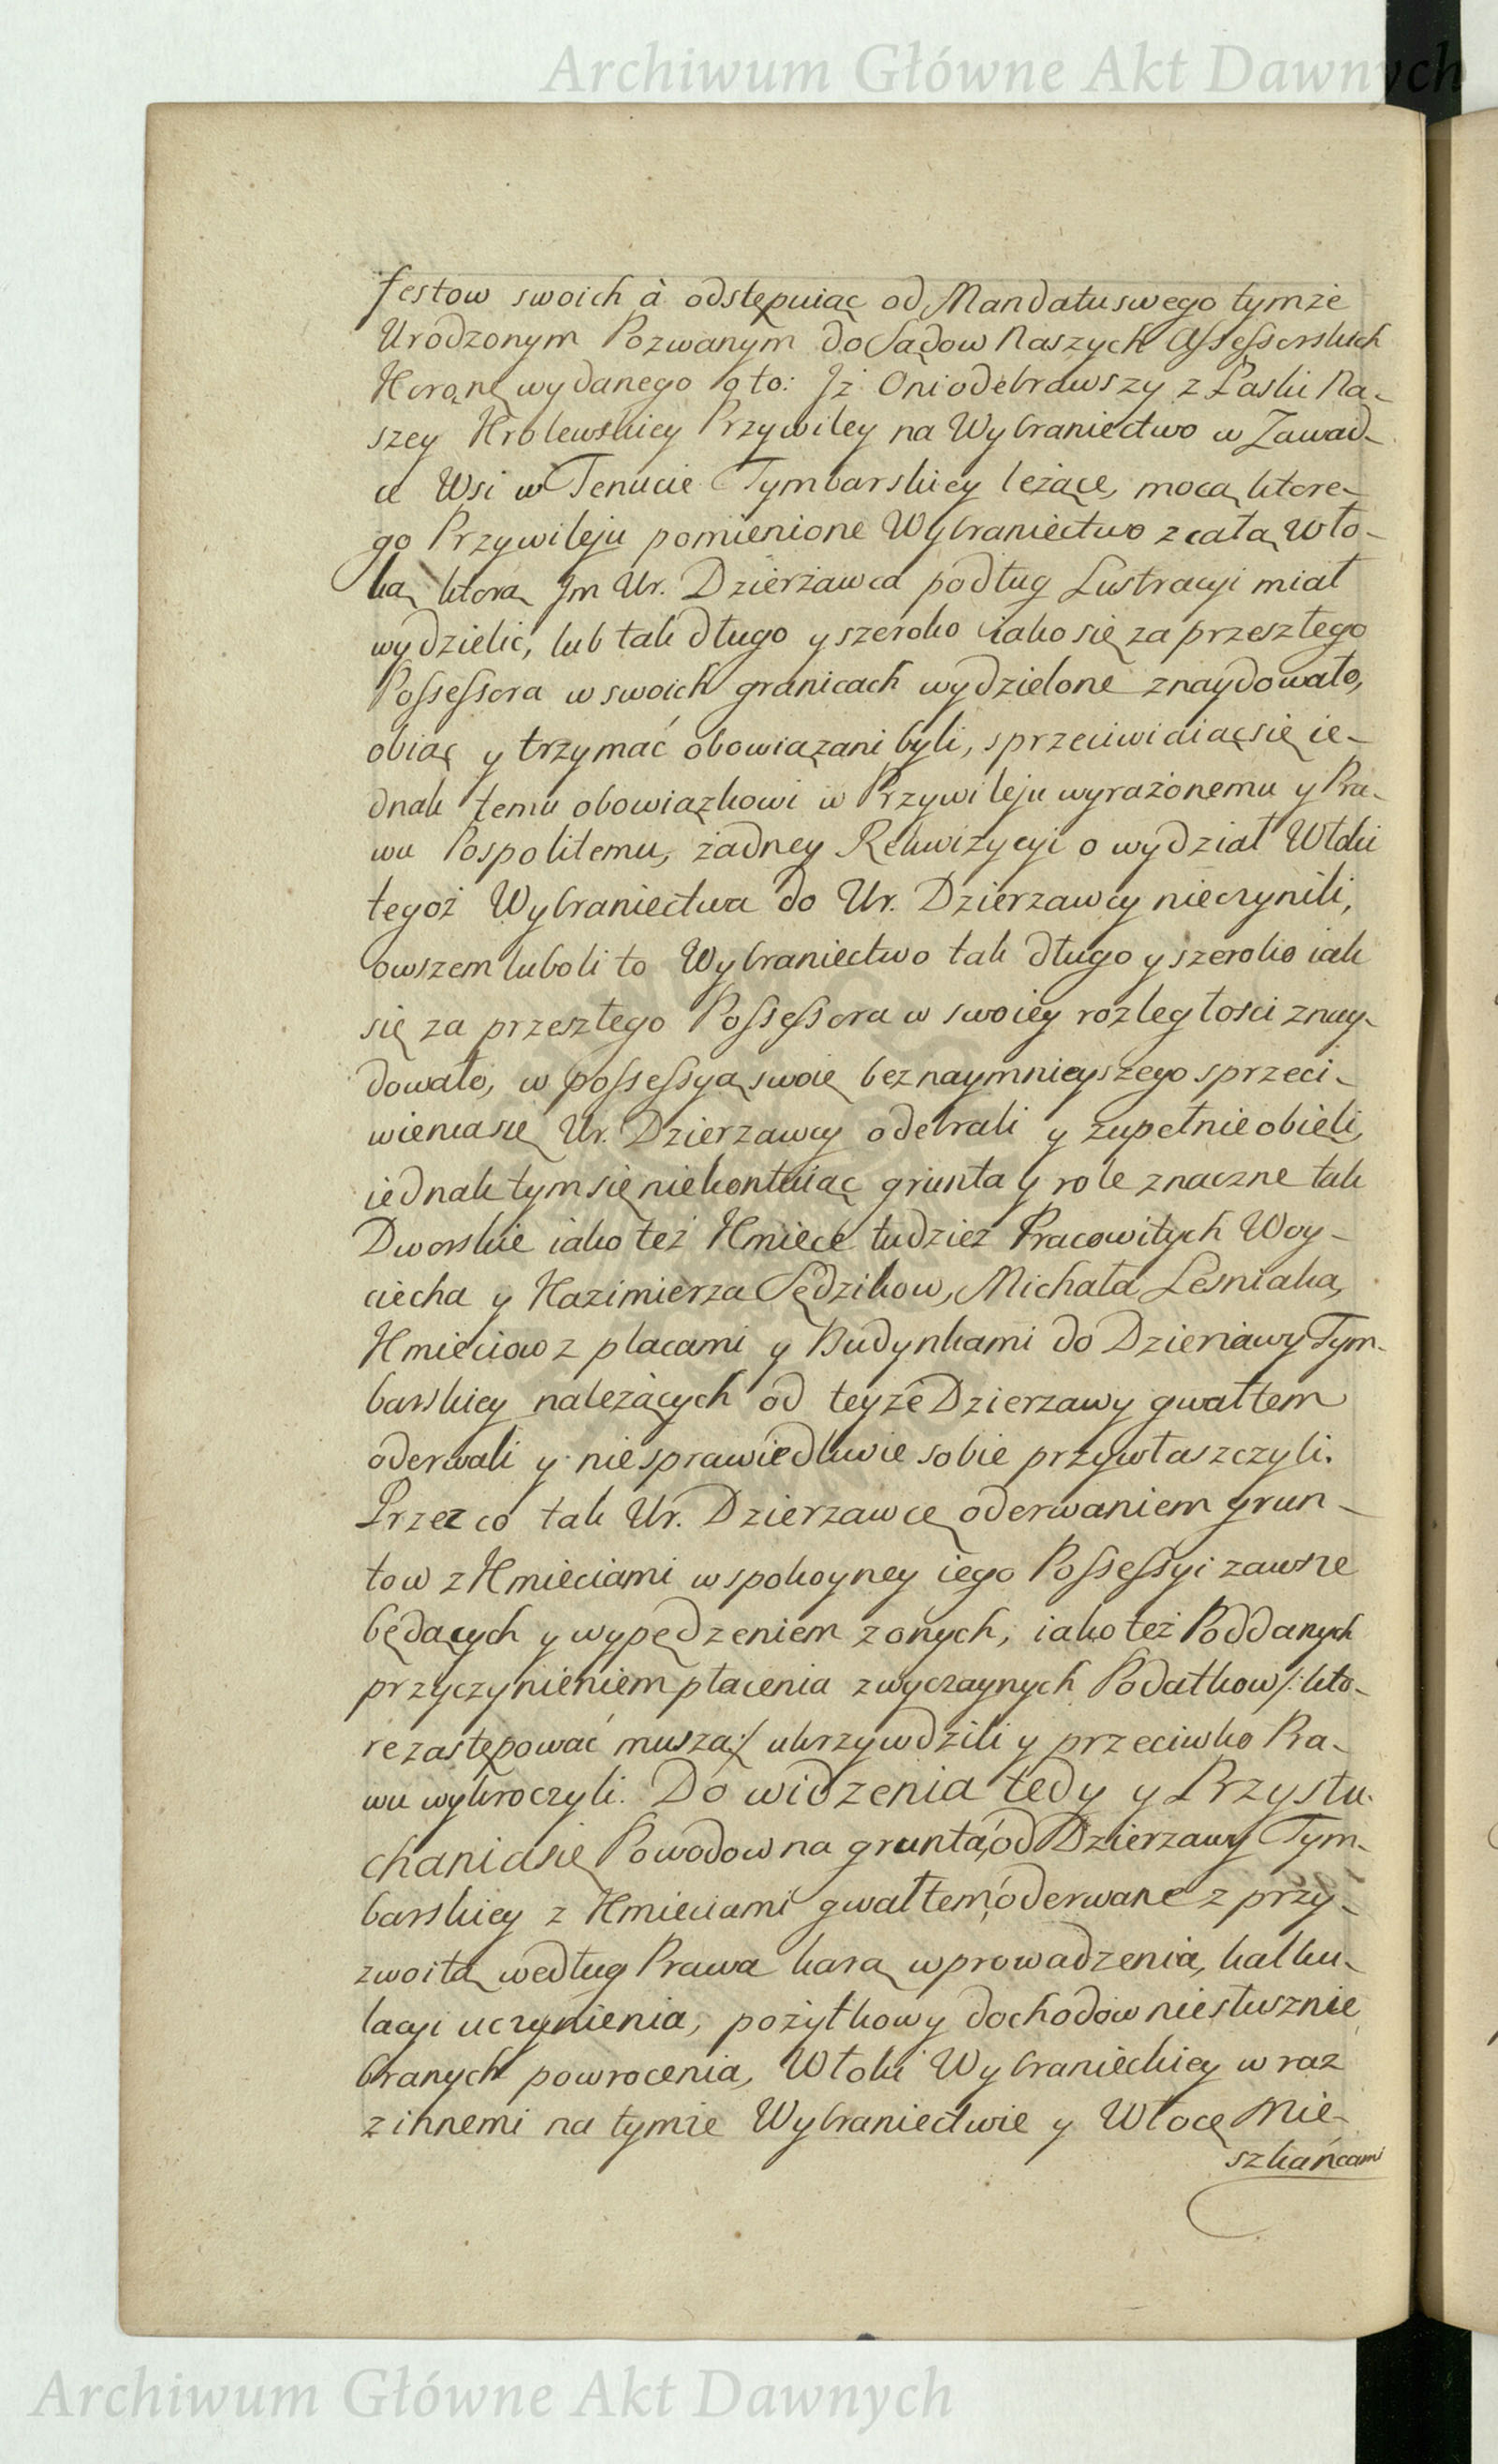 Archiwum Główne Akt Dawnych
festow swoich à odstępuiąc od Mandatu swego tymże
Urodzonym Pozwanym do Sądow Naszych Assessorskich
Koronę wydanego o to: Iż Oni odebrawszy z Łaski Na-
szey Krolewskiey Przywiley na Wybraniectwo w Zawad-
ce Wsi w Tenucie Tymbarskiey leżące, mocą ktore-
go Przywileju pomienione Wybraniectwo z całą Wło-
ką ktorą Im Ur. Dzierżawca podług Lustracyi miał
wydzielić, lub tak długo y szeroko iako się za przeszłego
Possessora w swoich granicach wydzielone znaydowało,
obiąc y trzymać obowiązani byli, sprzeciwiaiąc się ie-
dnak temu obowiązkowi w Przywileju wyrażonemu y Pra-
wu Pospolitemu, żadney Rekwizycyi o wydział Włoki
tegoż Wybraniectwa do Ur. Dzierzawcy nieczynili,
owszem luboli to Wybraniectwo tak długo y szeroko iak
się za przeszłego Possessora w swoiey rozległości znay-
dowało, w possessyą swoię bez naymnieyszego sprzeci-
wienia się Ur. Dzierzawcy odebrali y zupełnie obieli,
iednak tym się niekontuiąc grunta y role znaczne tak
Dworskie iako też Kmiece tudzież Pracowitych Woy-
ciecha y Kazimierza Sędzikow, Michała Leśniaka,
Kmieciow z placami y Budynkami do Dzierżawy Tym-
barskiey należących od teyże Dzierzawy gwałtem
oderwali y niesprawiedliwie sobie przywłaszczyli.
Przez co tak Ur. Dzierzawcę oderwaniem grun-
tow z Kmieciami w spokoyney iego Possessyi zawsze
będących y wypędzeniem z onych, iako też Poddanych
przyczynieniem płacenia zwyczaynych Podatkow /: kto-
re zastępować muszą :/ ukrzywdzili y przeciwko Pra-
wu wykroczyli. Do widzenia tedy y Przysłu-
chania się Powodow na grunta, od Dzierzawy Tym-
barskiey z Kmieciami gwałtem oderwane z przy-
zwoitą według Prawa karą wprowadzenia, kalku-
lacyi uczynienia, pożytkow y dochodow niesłusznie
branych powrocenia, Włoki Wybranieckiey wraz
z innemi na tymże Wybraniectwie y Włocę Mie-
szkańcami
Archiwum Główne Akt Dawnych